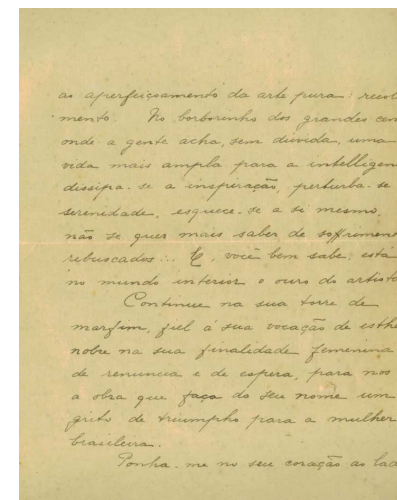 ao aperfeiçoamento da arte pura: recol
mento. No borborinho dos grandes cen
onde a gente acha, sem duvida, uma
vida mais ampla para a intelligen
dissipa-se a inspiração, perturba-se
serenidade, esquece-se a si mesmo,
não se quer mais saber de soffrimen
rebuscados... E, você bem sabe, está
no mundo interior o ouro do artist
Continue na sua torre de
marfim, fiel á sua vocação de esthe
nobre na sua finalidade femenina
de renuncia e de espera, para nos
a obra que faça do seu nome um
grito de triumpho para a mulher
brasileira.
Ponha-me no seu coração ao lad